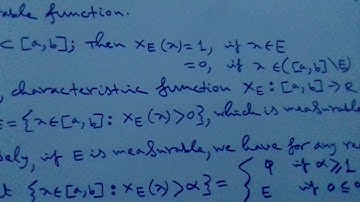 able function.
⊂ [a,b]; then χ_E(x)=1, if x∈E
=0, if x∈([a,b]\E)
, characteristic function χ_E : [a,b]→R
E = {x∈[a,b] : χ_E(x)>0}, which is measurable
ely, if E is measurable, we have for any re
t {x∈[a,b] : χ_E(x)>α} = { φ if α≥1
E if 0≤α